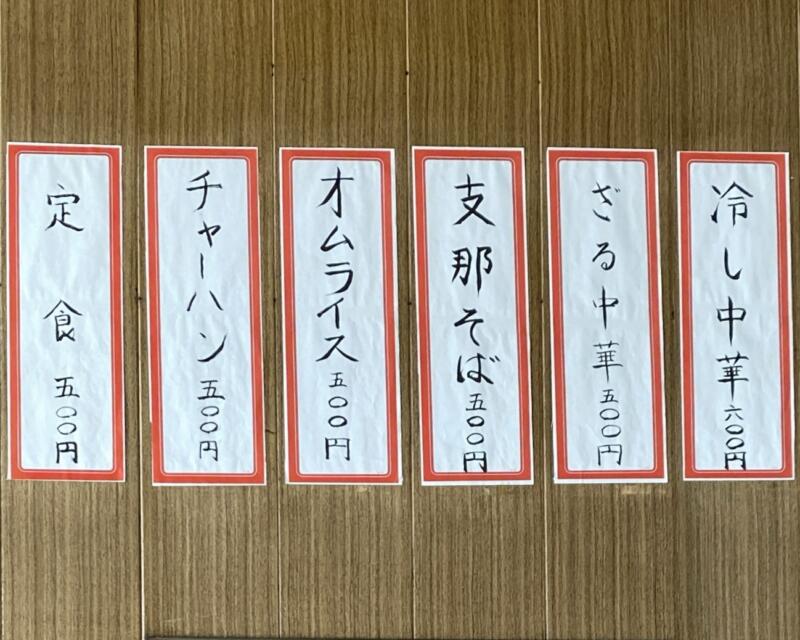 冷し中華 六〇〇円
ざる中華 五〇〇円
支那そば 五〇〇円
オムライス 五〇〇円
チャーハン 五〇〇円
定食 五〇〇円